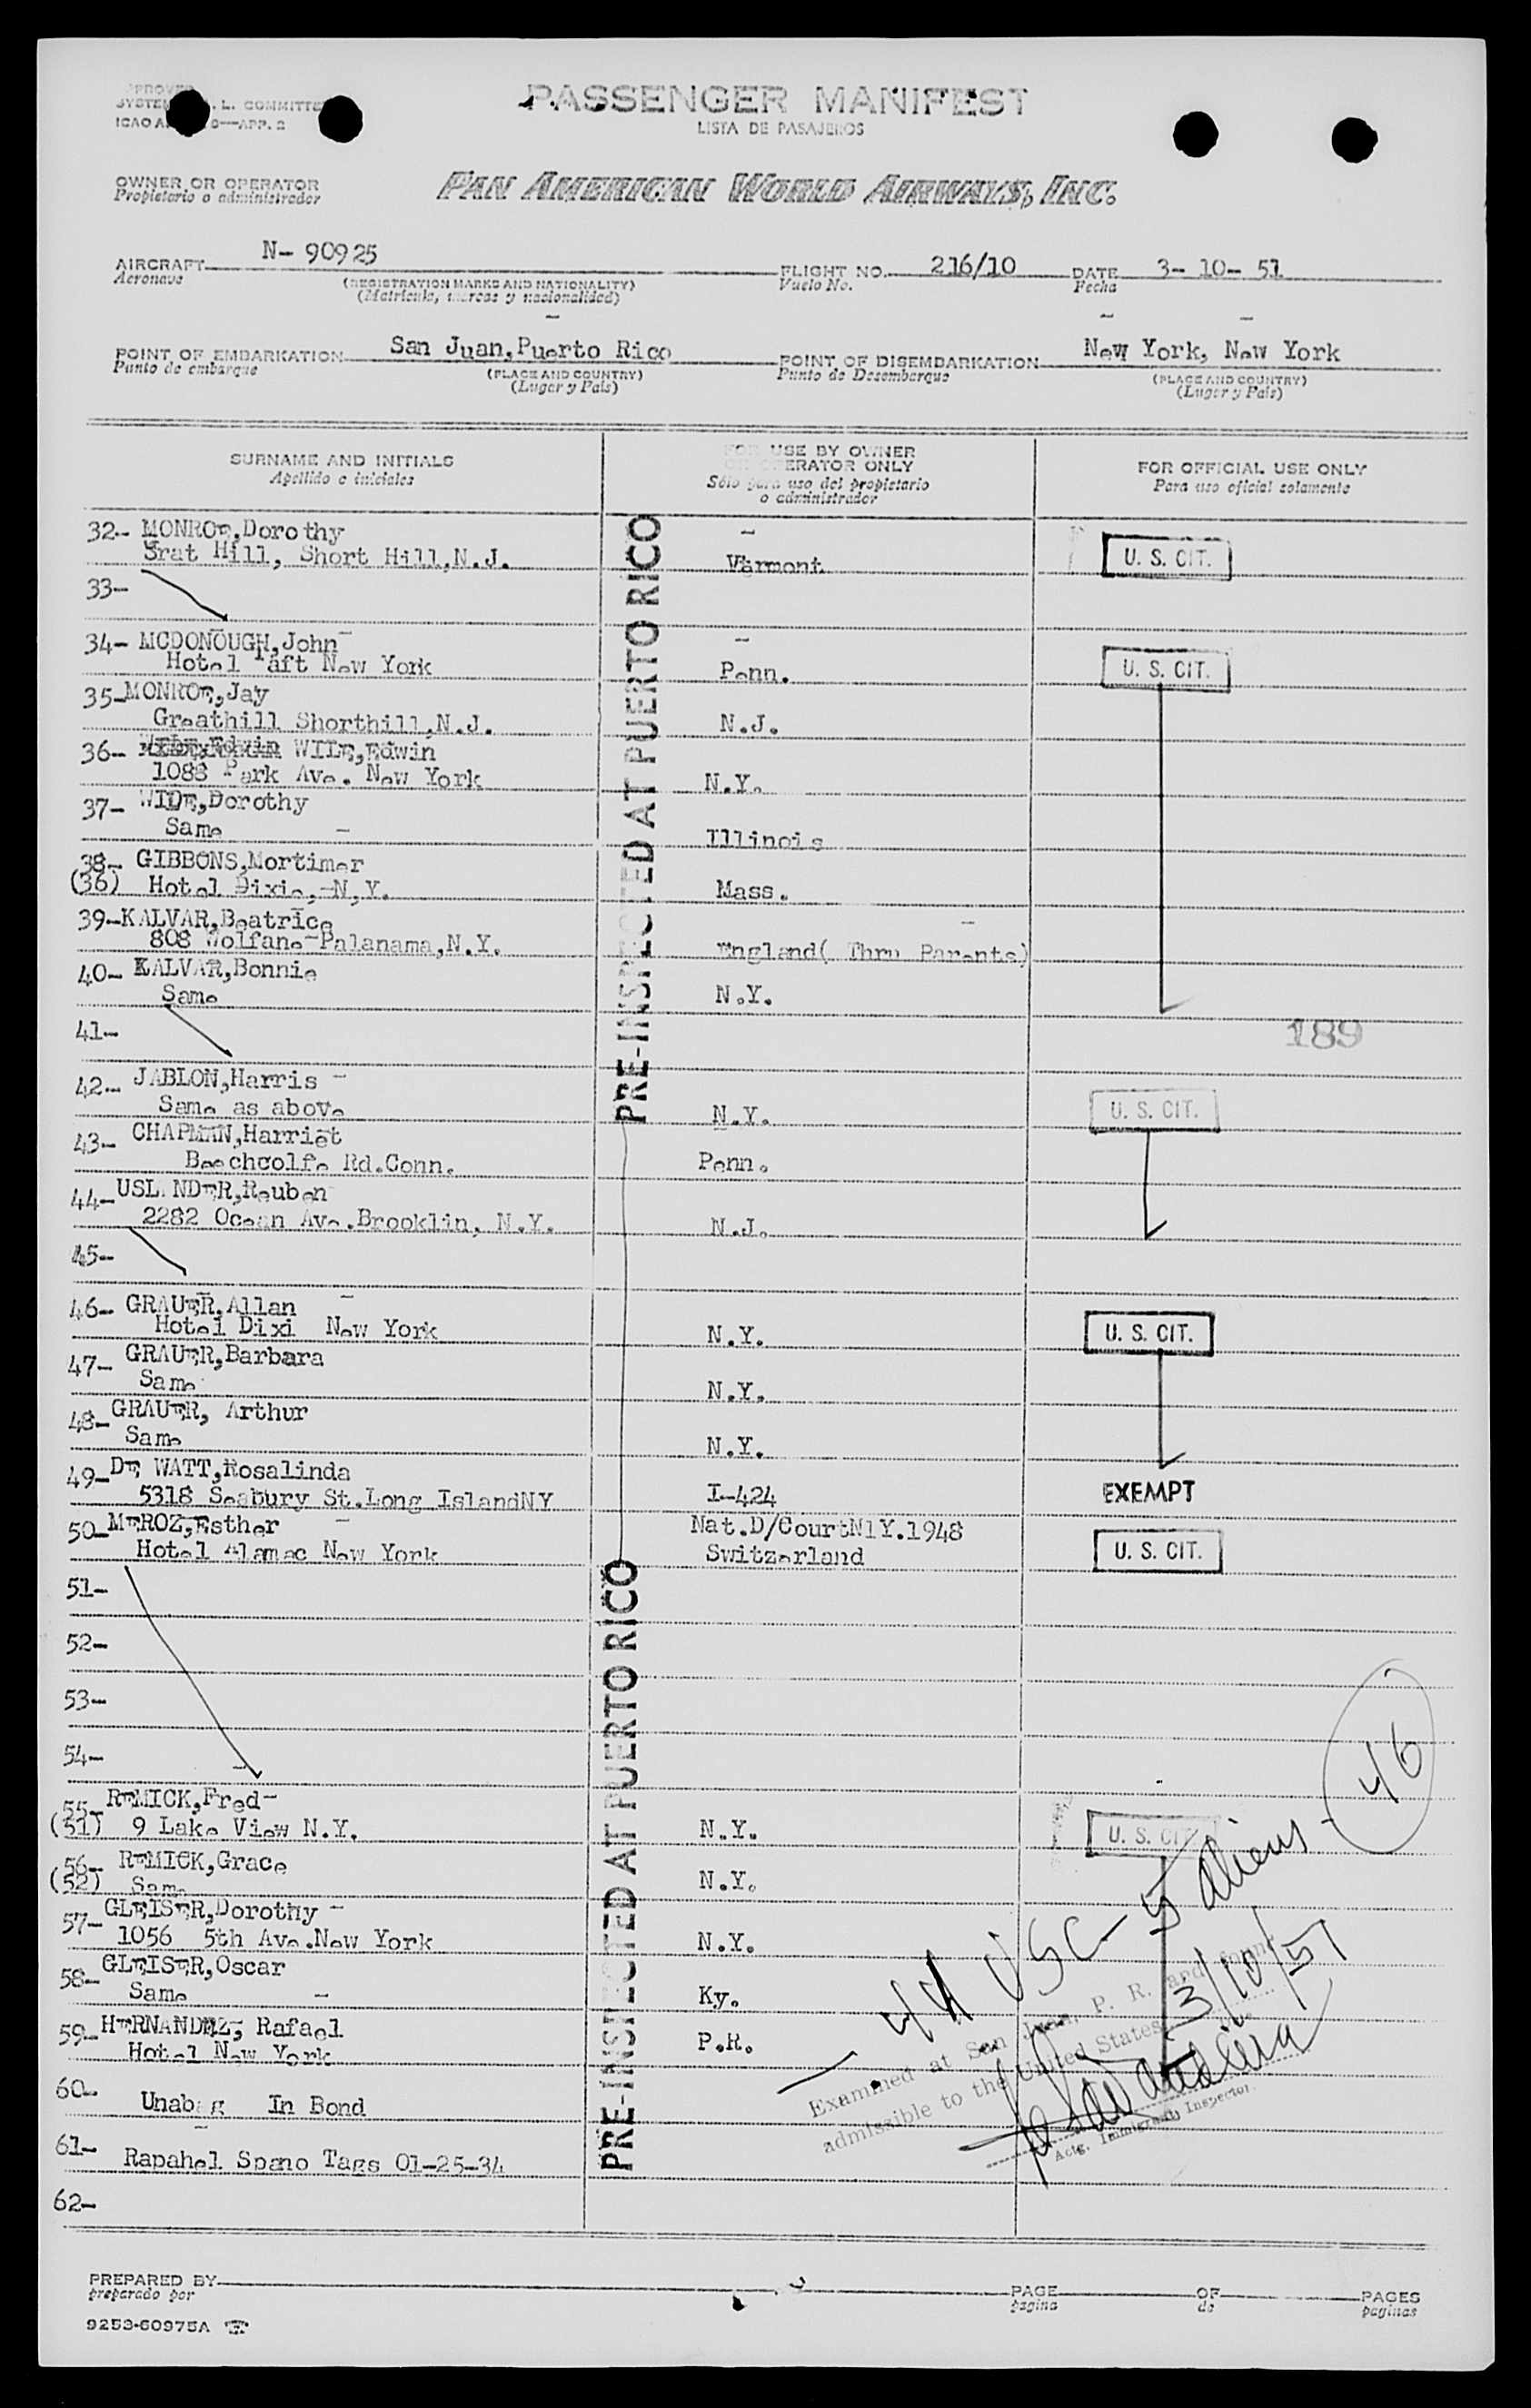 PASSENGER MANIFEST
LISTA DE PASAJEROS
L. COMMITTE
ICAO A
APP. 2
OWNER OR OPERATOR
Propietario o administrador
PAN AMERICAN WORLD AIRWAYS, INC.
AIRCRAFT N- 90925 FLIGHT NO. 216/10 DATE 3- 10- 51
Aeronave (REGISTRATION MARKS AND NATIONALITY) Vuelo No. Fecha
(Matricula, marcas y nacionalidad)
POINT OF EMBARKATION San Juan,Puerto Rico POINT OF DISEMBARKATION New York, New York
Punto de embarque (PLACE AND COUNTRY) Punto de Desembarque (PLACE AND COUNTRY)
(Lugar y País) (Lugar y País)
SURNAME AND INITIALS FOR USE BY OWNER FOR OFFICIAL USE ONLY
Apellido e iniciales OR OPERATOR ONLY Para uso oficial solamente
Sólo para uso del propietario
o administrador
PRE-INSPECTED AT PUERTO RICO
32- MONROE,Dorothy
Hill, Short Hill,N.J. Vermont U. S. CIT.
33-
34- MCDONOUGH,John
Hotel Taft New York Penn. U. S. CIT.
35-MONROE,Jay
Greathill Shorthill,N.J. N.J.
36- WILE,Edwin
1088 Park Ave. New York N.Y.
37- Dorothy
Same Illinois
38- GIBBONS,Mortimer
(36) Hotel Dixie,-N,Y. Mass.
39-KALVAR,Beatrice
808 Wolfane-Palanama,N.Y. England( Thru Parents)
40- KALVAR,Bonnie
Same N.Y.
41-
189
42- JABLON,Harris
Same as above N.Y. U. S. CIT.
43- CHAPMAN,Harriet
Beechcolfe Rd.Conn. Penn.
44-USL NDER,Reuben
2282 Ocean Ave.Brooklin, N.Y. N.J.
45-
46- GRAUER,Allan
Hotel Dixi New York N.Y. U. S. CIT.
47- GRAUER,Barbara
Same N.Y.
48-GRAUER, Arthur
Same N.Y.
49-DE WATT,Rosalinda
5318 Seabury St.Long IslandNY I-424 EXEMPT
50-MEROZ,Esther Nat.D/CourtN1Y.1948
Hotel Alamac New York Switzerland U. S. CIT.
51-
52-
PRE-INSPECTED AT PUERTO RICO
53-
54-
55- REMICK,Fred-
(51) 9 Lake View N.Y. N.Y. U. S. CIT.
56- REMICK,Grace
(52) Same N.Y.
57-GLEISER,Dorothy -
1056 5th Ave.New York N.Y.
58-GLEISER,Oscar
Same Ky.
59-HERNANDEZ, Rafael
Hotel New York P.R.
60- Unabag In Bond
61- Rapahel Spano Tags 01-25-34
62-
44 USC - 5 aliens - 46
Examined at San Juan, P. R. and found
admissible to the United States
3/10/51
Actg. Immigrant Inspector.
PREPARED BY PAGE OF PAGES
preparado por pagina de paginas
9253-60975A